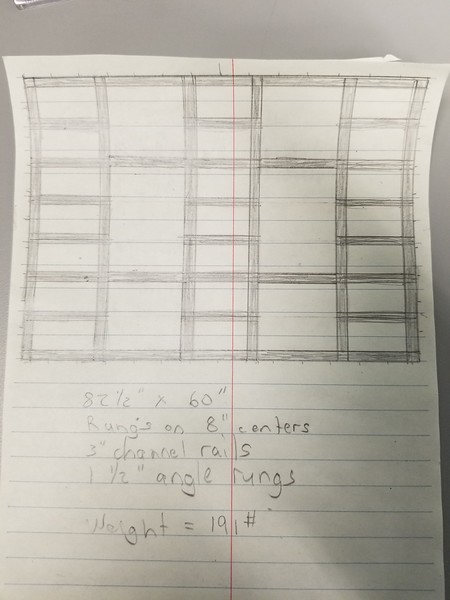 82 1/2" x 60"
Rungs on 8" centers
3" channel rails
1 1/2" angle rungs
Weight = 191#